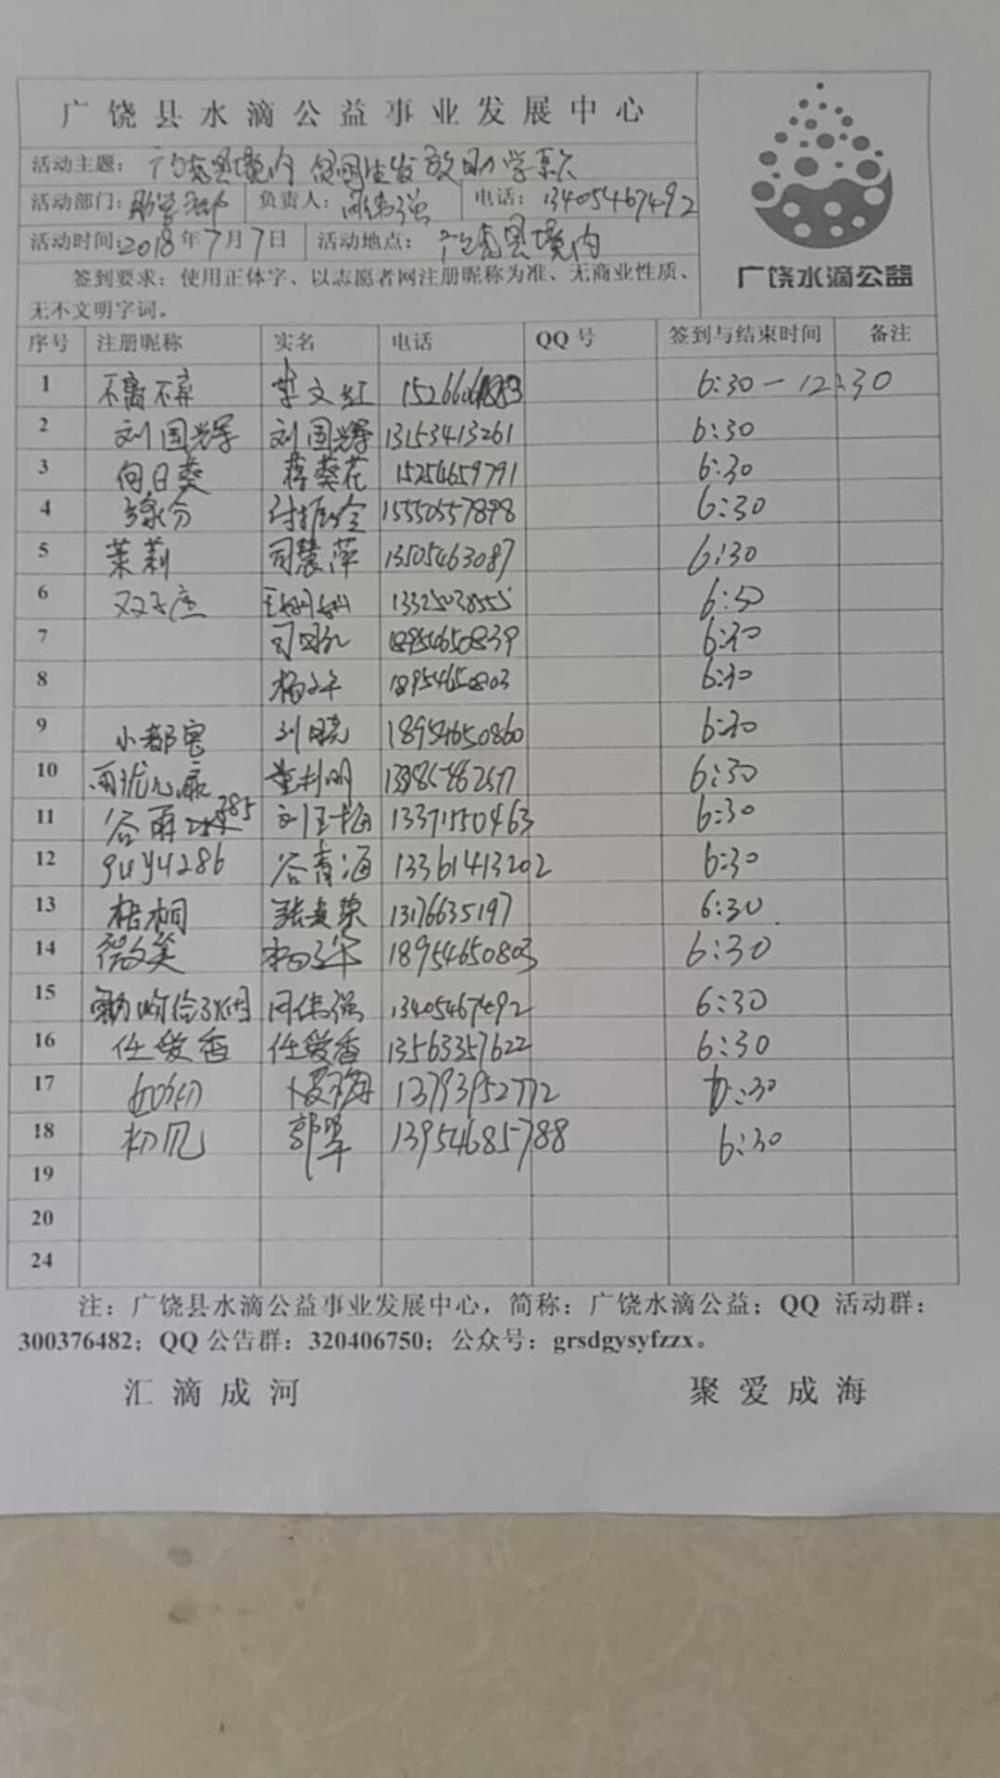 广饶县水滴公益事业发展中心
广饶水滴公益
活动主题：广饶县境内 发放助学款
活动部门：助学部 负责人： 电话：13405467492
活动时间：2018年7月7日 活动地点：广饶县境内
签到要求：使用正体字、以志愿者网注册昵称为准、无商业性质、
无不文明字词。
序号 注册昵称 实名 电话 QQ 号 签到与结束时间 备注
1 不离不弃 李文红 6:30—12:30
2 刘国辉 刘国辉 13153413261 6:30
3 向日葵 葵花 15254659791 6:30
4 缘分 15550557898 6:30
5 茉莉 司慧萍 13505463087 6:30
6 双子座 13325038555 6:30
7 18954650839 6:30
8 18954650803 6:30
9 小都 刘晓 18954650860 6:30
10 董利明 6:30
11 谷雨285 13371550463 6:30
12 guyu286 谷青海 13361413202 6:30
13 梧桐 张贵荣 13176635197 6:30
14 微笑 杨子华 18954650803 6:30
15 13405467492 6:30
16 任爱香 任爱香 13563357622 6:30
17 如初 13793952772 6:30
18 初见 郭军 13954685788 6:30
19
20
24
注：广饶县水滴公益事业发展中心，简称：广饶水滴公益；QQ 活动群：
300376482；QQ 公告群：320406750；公众号：grsdgysyfzzx。
汇滴成河 聚爱成海